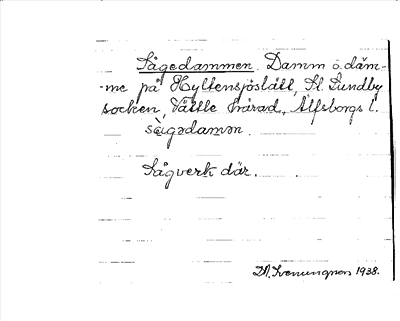 Sågedammen. Damm o. däm-
me på Hyltensjöslätt, St. Lundby
socken, Vättle härad, Älfsborgs l.
sàgədamən.
Sågverk där.
Svenungson 1938.